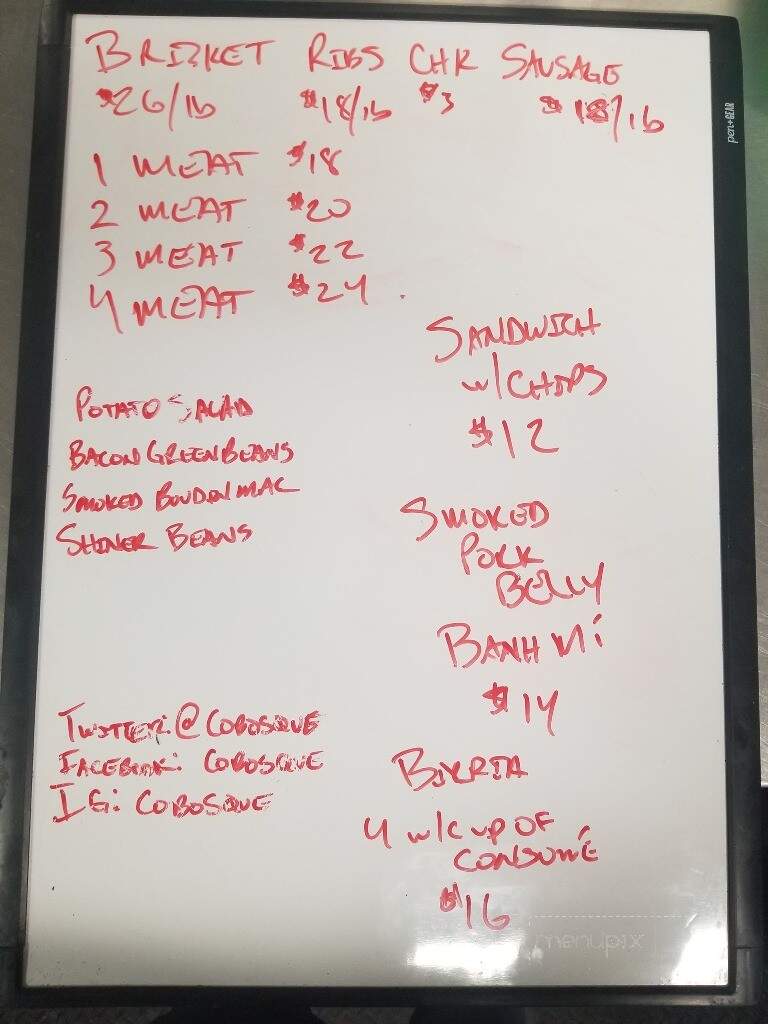 BRISKET RIBS CHK SAUSAGE
$26/lb $18/lb $3 $18/lb
1 MEAT $18
2 MEAT $20
3 MEAT $22
4 MEAT $24
SANDWICH
w/CHIPS
$12
POTATO SALAD
BACON GREEN BEANS
SMOKED BOUDIN MAC
SHINER BEANS
SMOKED
PORK
BELLY
BANH Mi
$14
TWITTER: @COBOSQUE
FACEBOOK: COBOSQUE
IG: COBOSQUE
BIRRIA
4 w/CUP OF
CONSOMÉ
$16
pen+GEAR
menupix